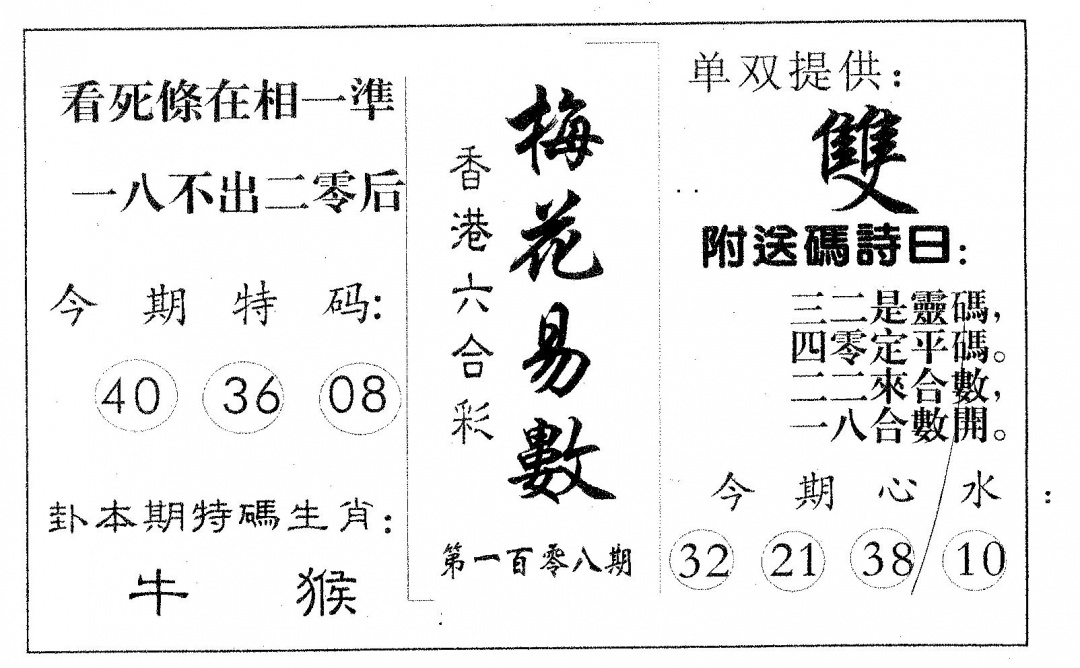 看死條在相一準
一八不出二零后
今期特码:
40 36 08
卦本期特碼生肖:
牛 猴
香港六合彩
梅花易數
第一百零八期
单双提供:
雙
附送碼詩曰:
三二是靈碼,
四零定平碼。
二二來合數,
一八合數開。
今期心水:
32 21 38 10